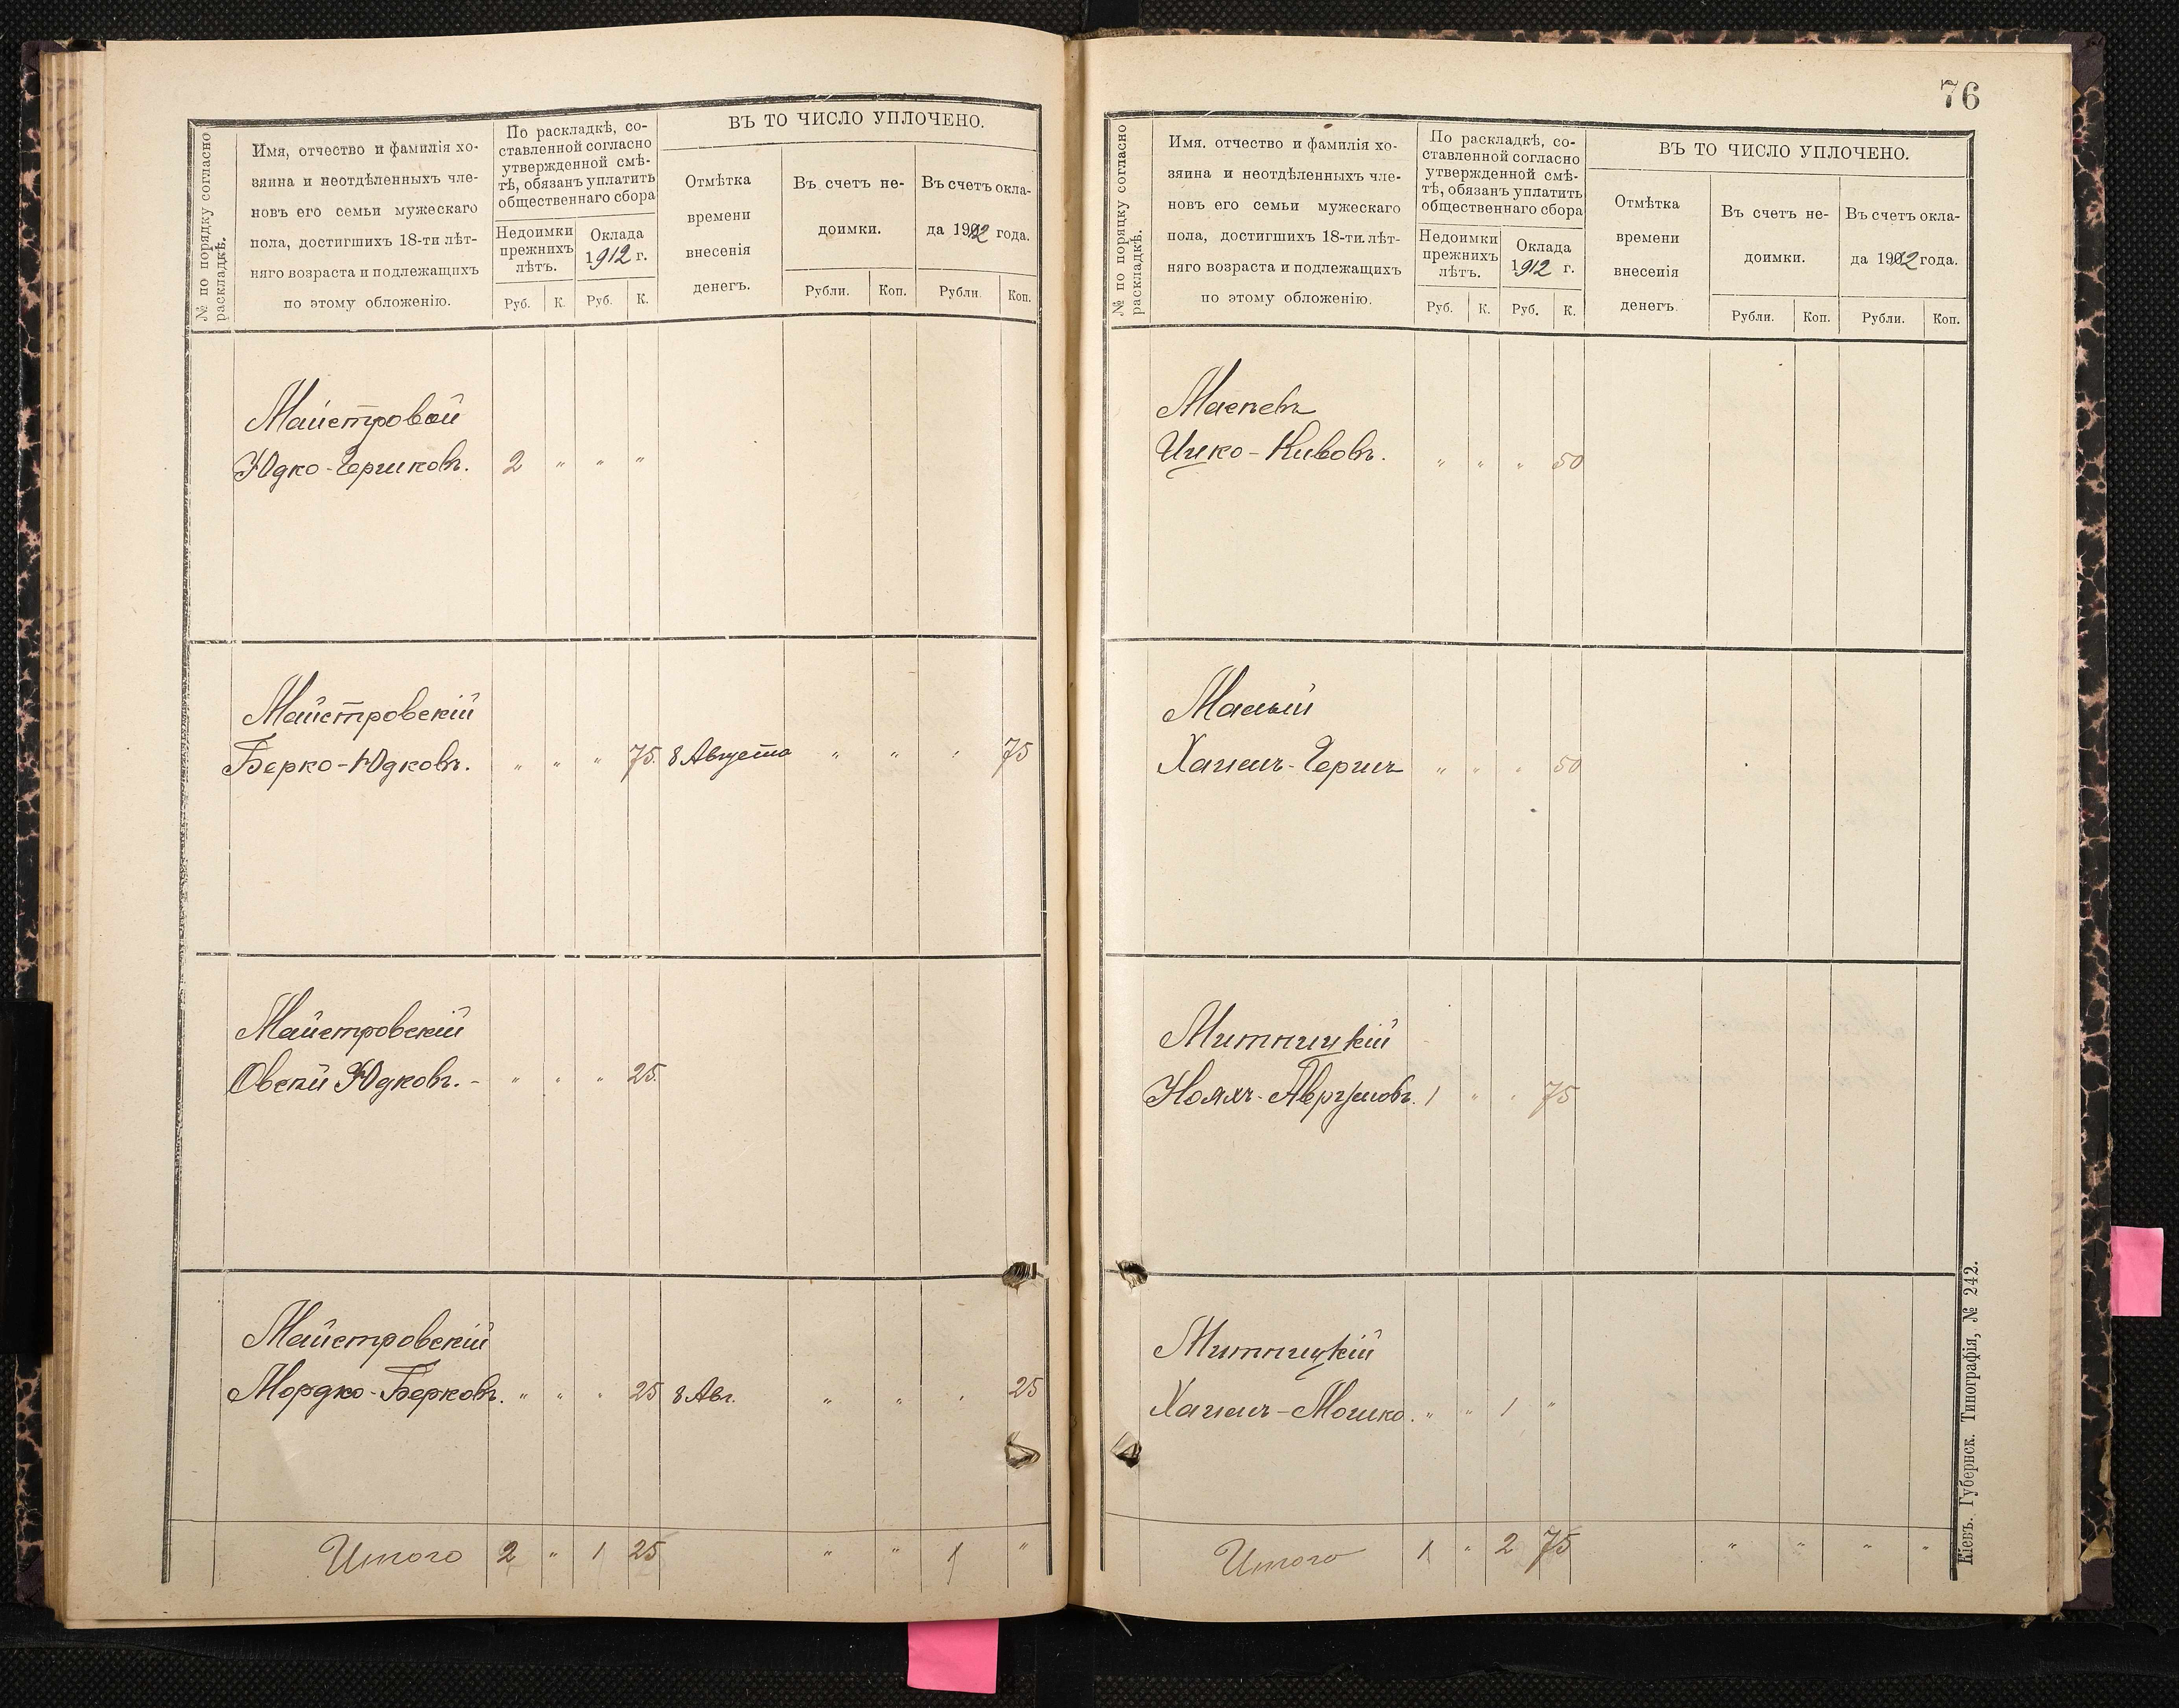 № по порядку согласно
раскладкѣ.
Имя, отчество и фамилія хо-
зяина и неотдѣленныхъ чле-
новъ его семьи мужескаго
пола, достигшихъ 18-ти лѣт-
няго возраста и подлежащихъ
по этому обложенію.
По раскладкѣ, со-
ставленной согласно
утвержденной смѣ-
тѣ, обязанъ уплатить
общественнаго сбора
Недоимки
прежнихъ
лѣтъ.
Оклада
1912 г.
Руб. К. Руб. К.
ВЪ ТО ЧИСЛО УПЛОЧЕНО.
Отмѣтка
времени
внесенія
денегъ.
Въ счетъ не-
доимки.
Рубли. Коп.
Въ счетъ окла-
да 1912 года.
Рубли. Коп.
Майстровой
Юдко-Гершковъ. 2 " " "
Майстровскій
Берко-Юдковъ. " " " 75. 8 Августа " " " 75
Майстровскій
Овсей Юдковъ. - " " " 25.
Майстровскій
Мордко-Берковъ. " " " 25 8 Авг. " " " 25
Итого 2 " 1 25 " " 1 "
76
№ по порядку согласно
раскладкѣ.
Имя. отчество и фамилія хо-
зяина и неотдѣленныхъ чле-
новъ его семьи мужескаго
пола, достигшихъ 18-ти лѣт-
няго возраста и подлежащихъ
по этому обложенію.
По раскладкѣ, со-
ставленной согласно
утвержденной смѣ-
тѣ, обязанъ уплатить
общественнаго сбора
Недоимки
прежнихъ
лѣтъ.
Оклада
1912 г.
Руб. К. Руб. К.
ВЪ ТО ЧИСЛО УПЛОЧЕНО.
Отмѣтка
времени
внесенія
денегъ.
Въ счетъ не-
доимки.
Рубли. Коп.
Въ счетъ окла-
да 1912 года.
Рубли. Коп.
Ицко-Кивовъ. " " " 50
Малый
Хаимъ-Гершъ " " " 50
Митницкій
Нояхъ-Аврумовъ. 1 " " 75
Митницкій
Хаимъ-Мошко. " " 1 "
Итого 1 " 2 75 " " " "
Кіевъ. Губернск. Типографія, № 242.